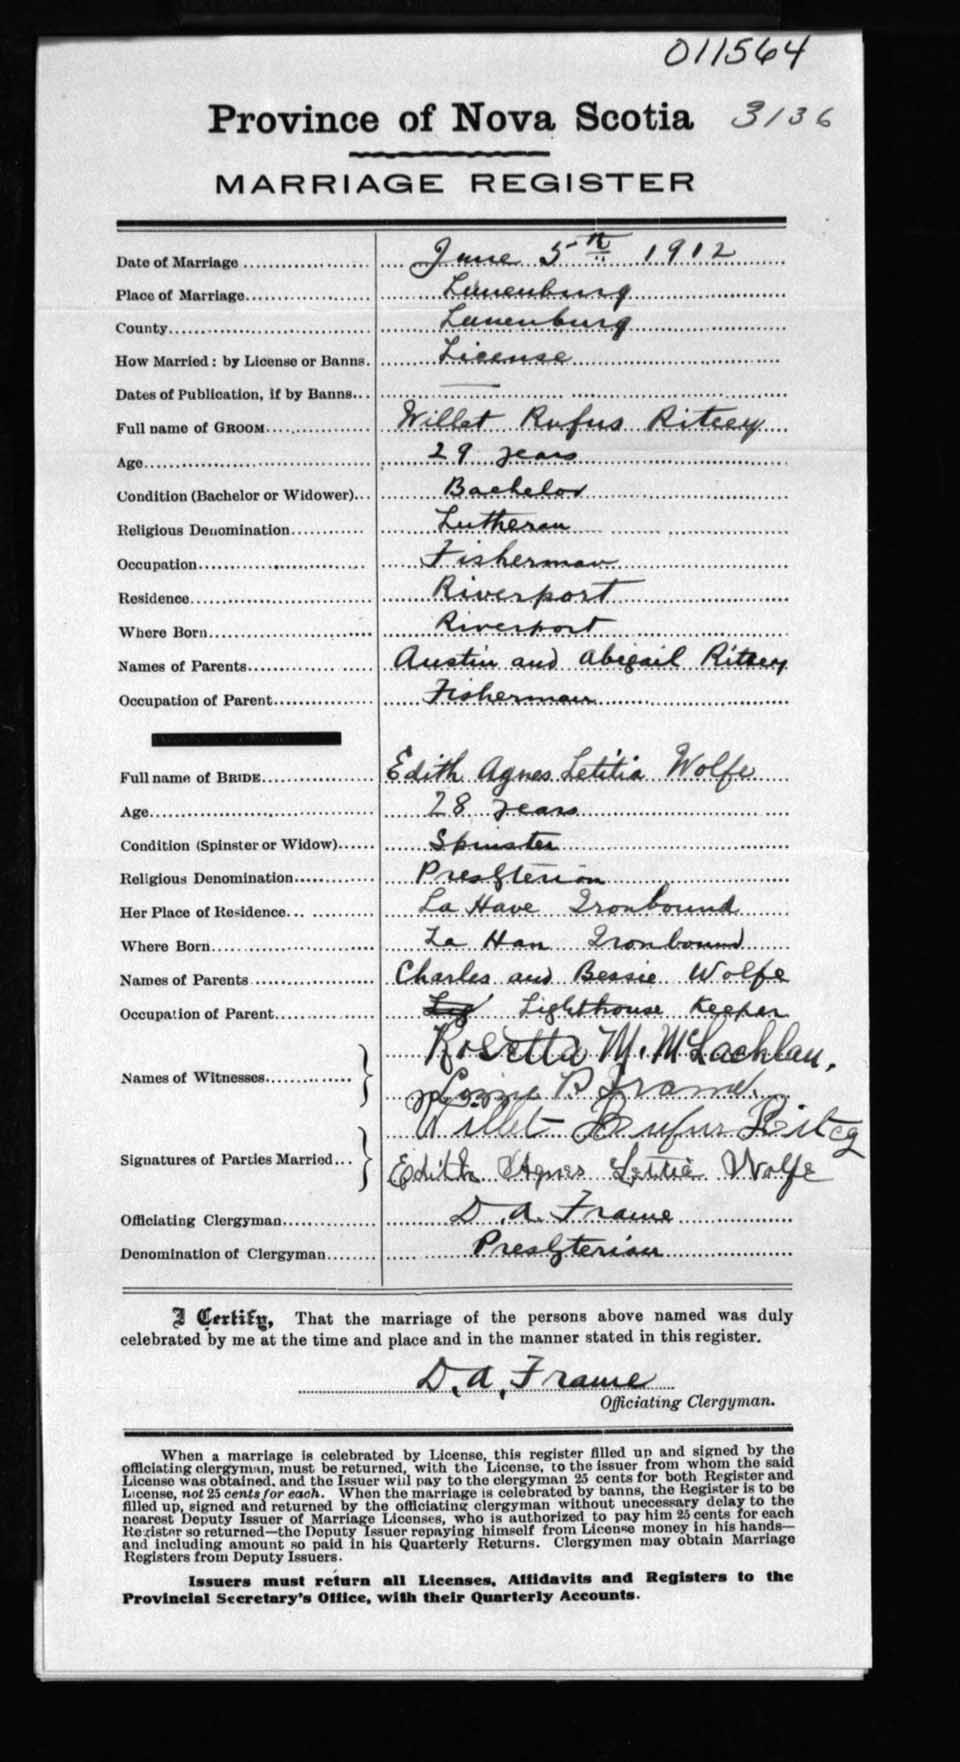 011564
Province of Nova Scotia 3136
MARRIAGE REGISTER
Date of Marriage June 5th 1912
Place of Marriage Lunenburg
County Lunenburg
How Married: by License or Banns. License
Dates of Publication, if by Banns
Full name of GROOM Willet Rufus Ritcey
Age 29 years
Condition (Bachelor or Widower) Bachelor
Religious Denomination Lutheran
Occupation Fisherman
Residence Riverport
Where Born Riverport
Names of Parents Austin and Abigail Ritcey
Occupation of Parent Fisherman
Full name of BRIDE Edith Agnes Letitia Wolfe
Age 28 years
Condition (Spinster or Widow) Spinster
Religious Denomination Presbterian
Her Place of Residence La Have Ironbound
Where Born La Han Ironbound
Names of Parents Charles and Bessie Wolfe
Occupation of Parent Lighthouse Keeper
Rosetta M. McLachlan.
Names of Witnesses B Frame.
Willet Rufus Ritcey
Signatures of Parties Married Edith Agnes Letitia Wolfe
Officiating Clergyman D. A. Frame
Denomination of Clergyman Presbterian
I Certify, That the marriage of the persons above named was duly
celebrated by me at the time and place and in the manner stated in this register.
D. A. Frame
Officiating Clergyman.
When a marriage is celebrated by License, this register filled up and signed by the
officiating clergyman, must be returned, with the License, to the issuer from whom the said
License was obtained, and the Issuer will pay to the clergyman 25 cents for both Register and
License, not 25 cents for each. When the marriage is celebrated by banns, the Register is to be
filled up, signed and returned by the officiating clergyman without unecessary delay to the
nearest Deputy Issuer of Marriage Licenses, who is authorized to pay him 25 cents for each
Register so returned—the Deputy Issuer repaying himself from License money in his hands—
and including amount so paid in his Quarterly Returns. Clergymen may obtain Marriage
Registers from Deputy Issuers.
Issuers must return all Licenses, Affidavits and Registers to the
Provincial Secretary's Office, with their Quarterly Accounts.